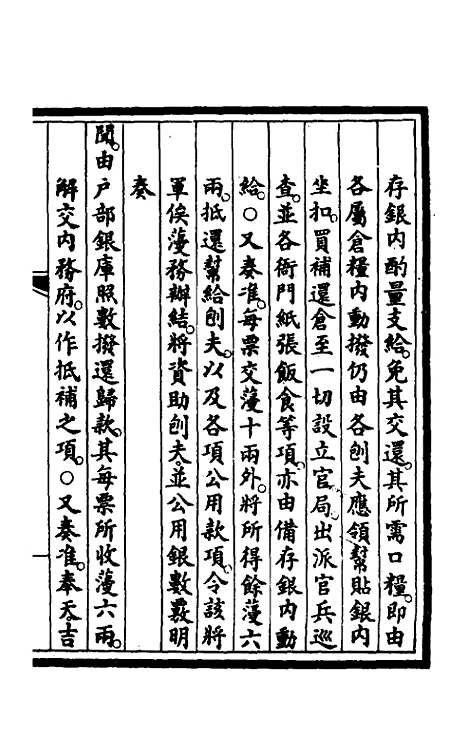 存銀內酌量支給。免其交還。其所需口糧。即由
各屬倉糧內動撥仍由各刨夫應領幫貼銀內
坐扣。買補還倉至一切設立官局。出派官兵巡
查。並各衙門紙張飯食等項。亦由備存銀內動
給。○又奏准。每票交蓡十兩外。將所得餘蓡六
兩。抵還幫給刨夫。以及各項公用款項。令該將
軍俟蓡務辦結。將資助刨夫。並公用銀數覈明
奏
聞。由戶部銀庫照數撥還歸款。其每票所收蓡六兩。
解交內務府。以作抵補之項。○又奏准。奉天。吉